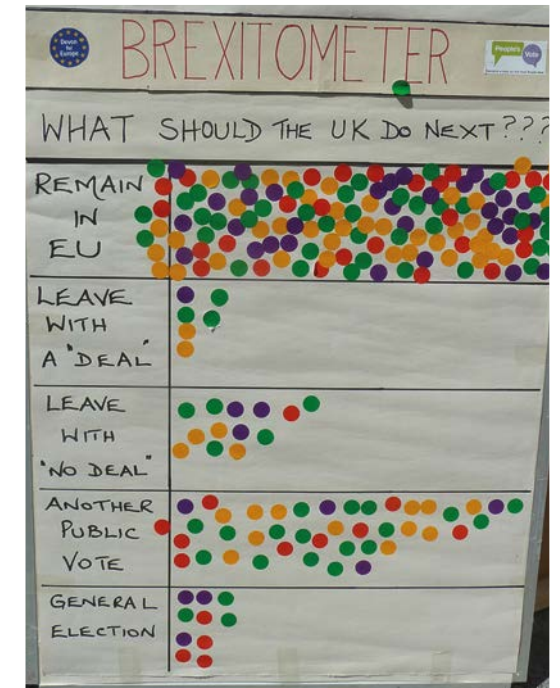 Devon
for
Europe
BREXITOMETER
People's
Vote
WHAT SHOULD THE UK DO NEXT???
REMAIN
IN
EU
LEAVE
WITH
A "DEAL"
LEAVE
WITH
"NO DEAL"
ANOTHER
PUBLIC
VOTE
GENERAL
ELECTION